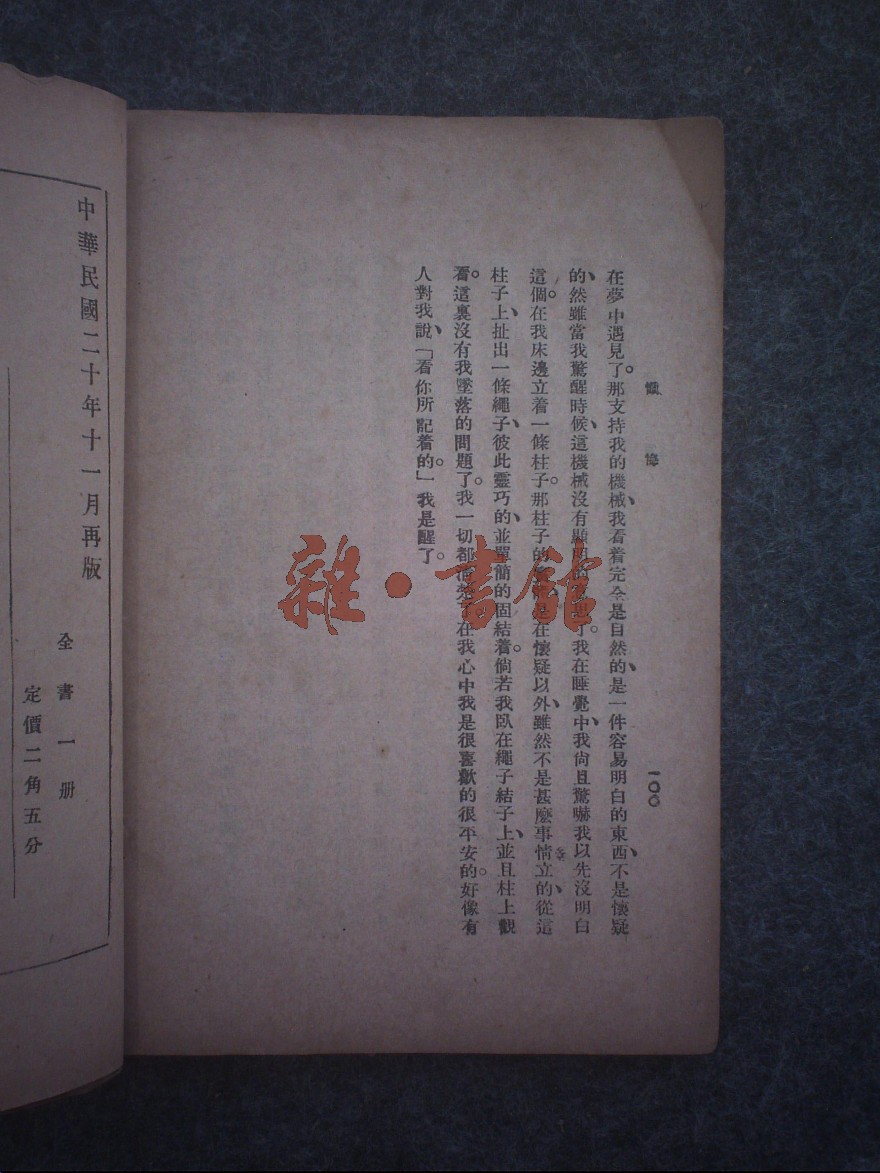 懺悔
一〇〇
在夢中遇見了。那支持我的機械、我看着完全是自然的、是一件容易明白的東西、不是懷疑
的、然雖當我驚醒時候、這機械沒有顯明的意思了。我在睡覺中、我尙且驚嚇我以先沒明白
這個。在我床邊立着一條柱子。那柱子的是在懷疑以外、雖然不是甚麼事情立的、從這
柱子上、扯出一條繩子、彼此靈巧的、並單簡的固結着。倘若我臥在繩子結子上、並且柱上觀
看。這裏沒有我墜落的問題了。我一切都淸楚了、在我心中我是很喜歡的很平安的。好像有
人對我說、「看你所記着的。」我是醒了。
中華民國二十年十一月再版
全書一册
定價二角五分
雜·書館